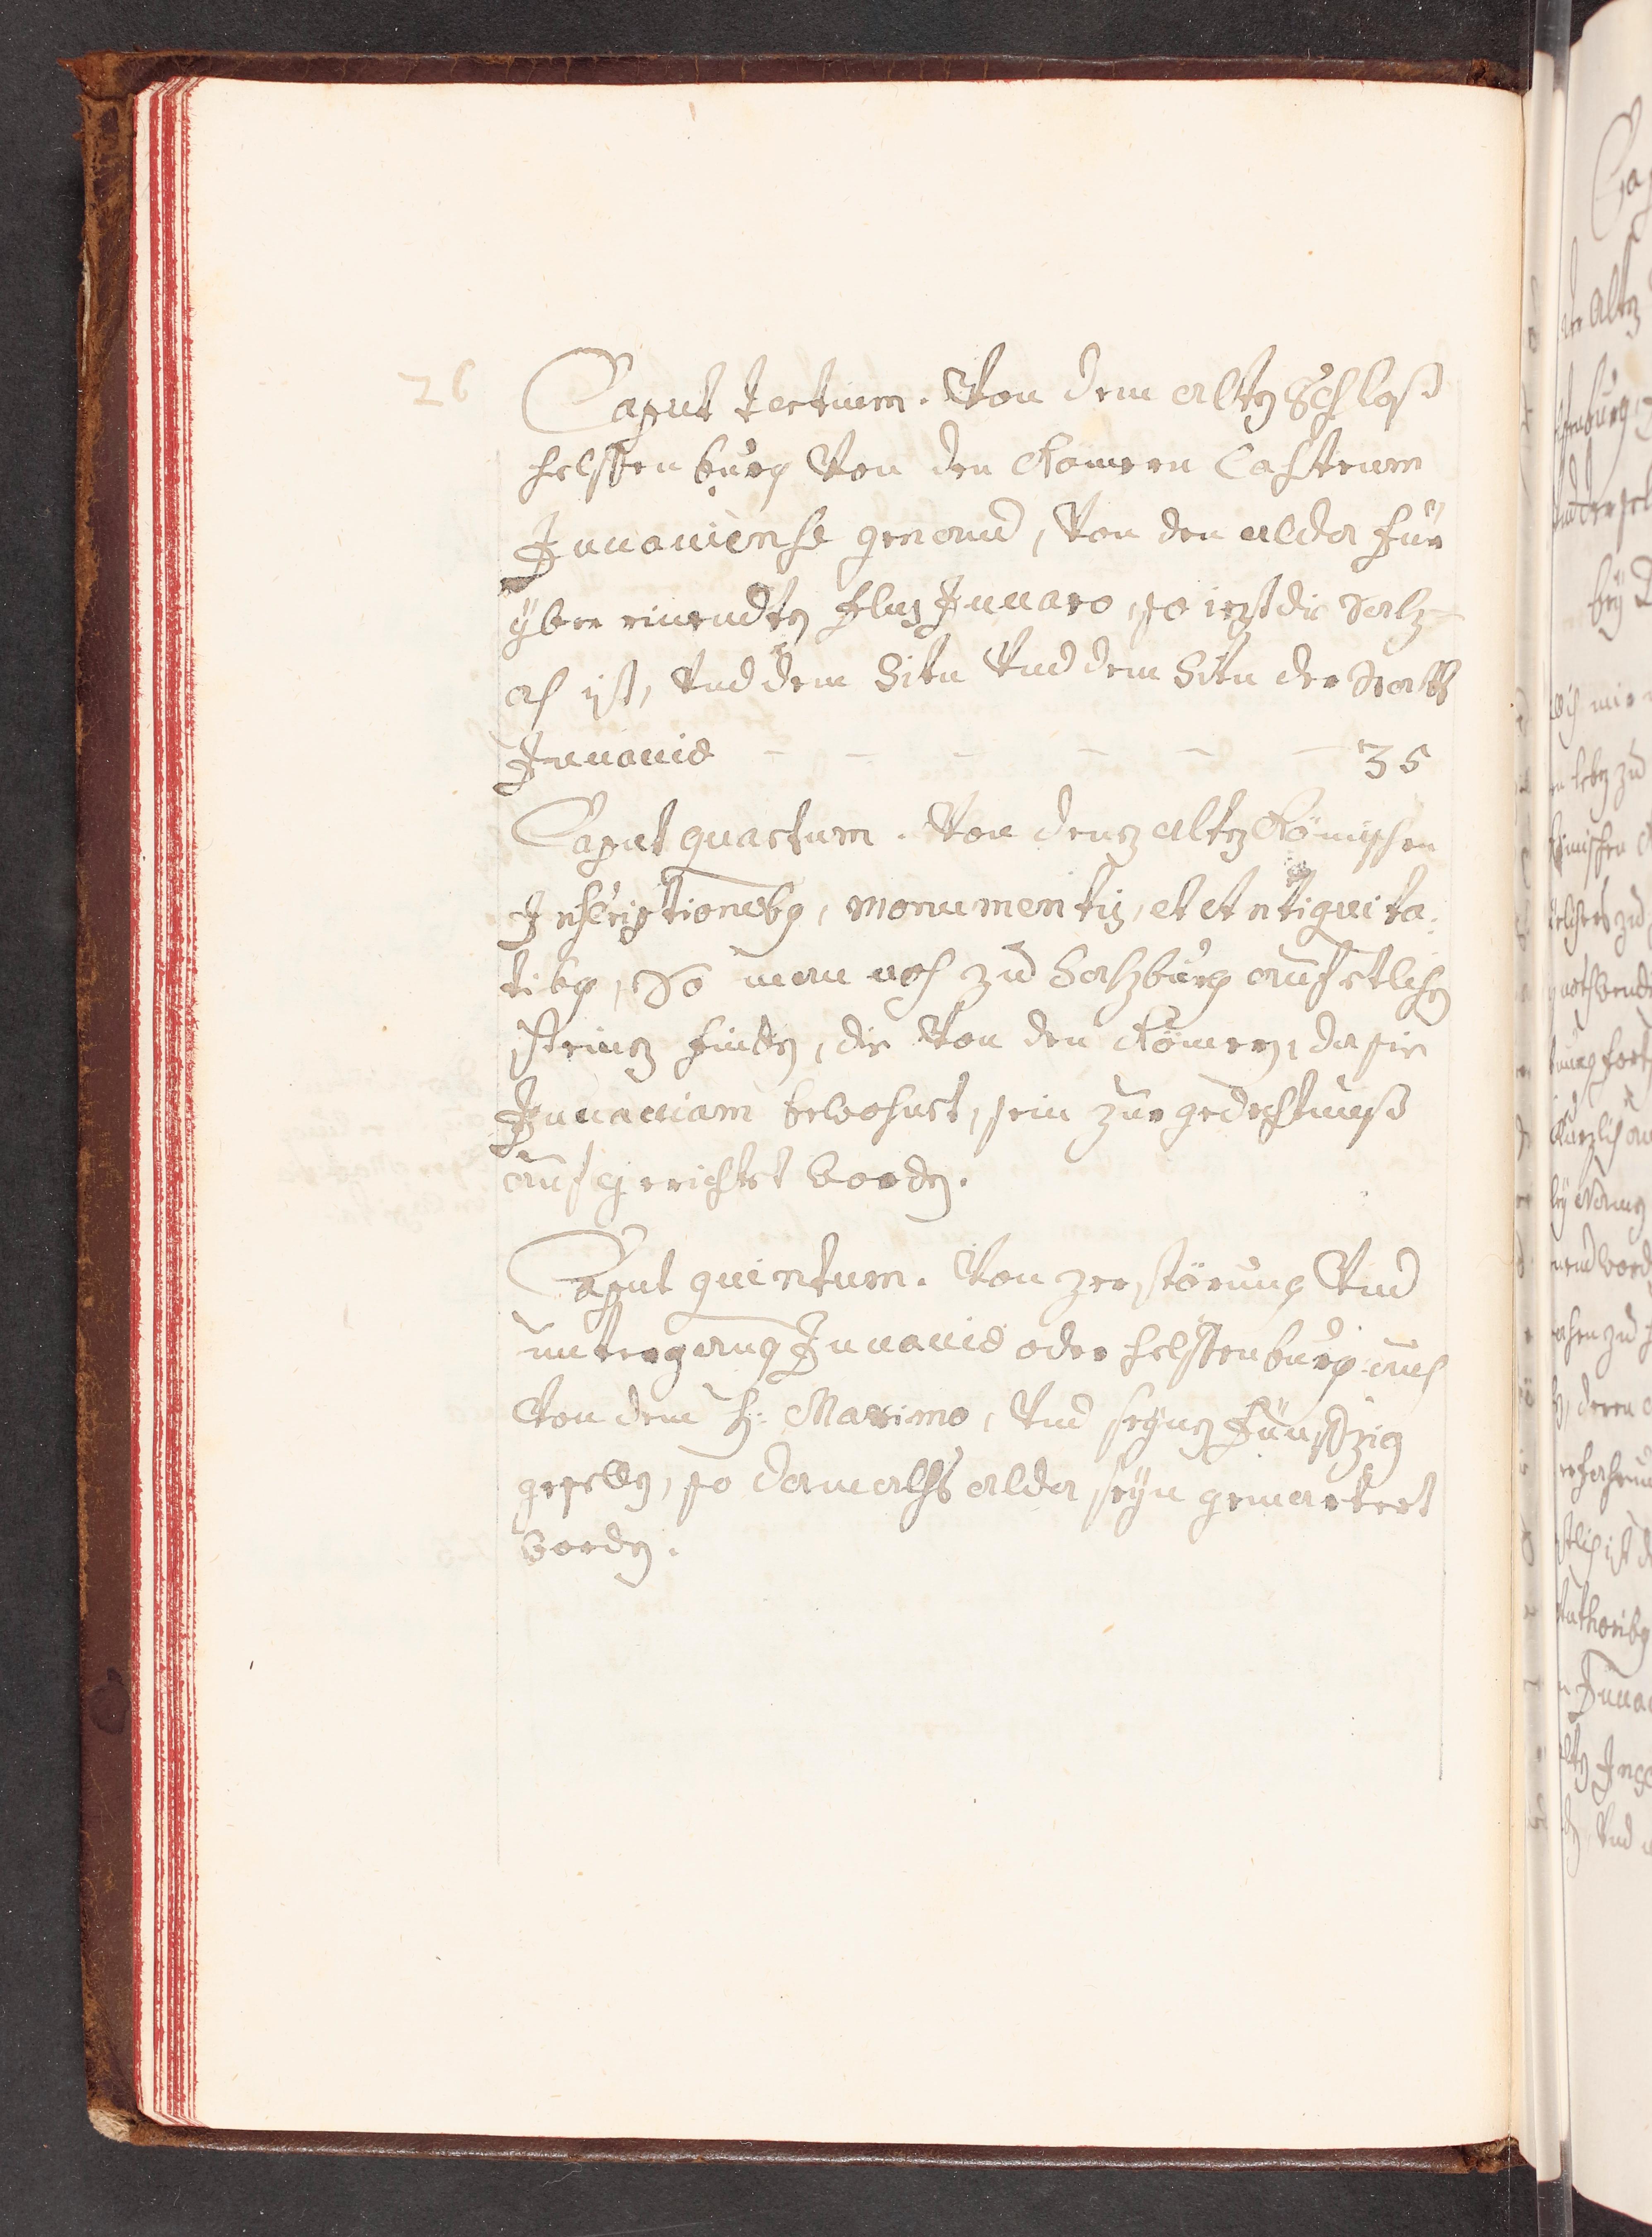 26
Caput tertium. Von dem alten Schloß
helffenburg Von den Römern Castrum
Juuauiense genand, Von den alda für
yber rinendten flus Juuaro, so iezt die Salz-
ach ist, Vnd dem Situ Vnd dem Situ der Statt
Juuauiæ - - - - - - 35
Caput quartum. Von denen alten Römischen
Inscriptionibus, monumentis, et Antiquita-
tibus, So man noch zu Salzburg auf etlichen
steinen finden, die Von den Römern, da sie
Juuauiam bewohnet, sein zur gedechtnuß
aufgerichtet worden.
Caput quintum. Von zerstörung Vnd
untergang Juuauiæ oder helffenburg auch
Von dem H: Maximo, Vnd seynen fünffzig
gesellen, so damalhs alda seyn gemartert
worden.